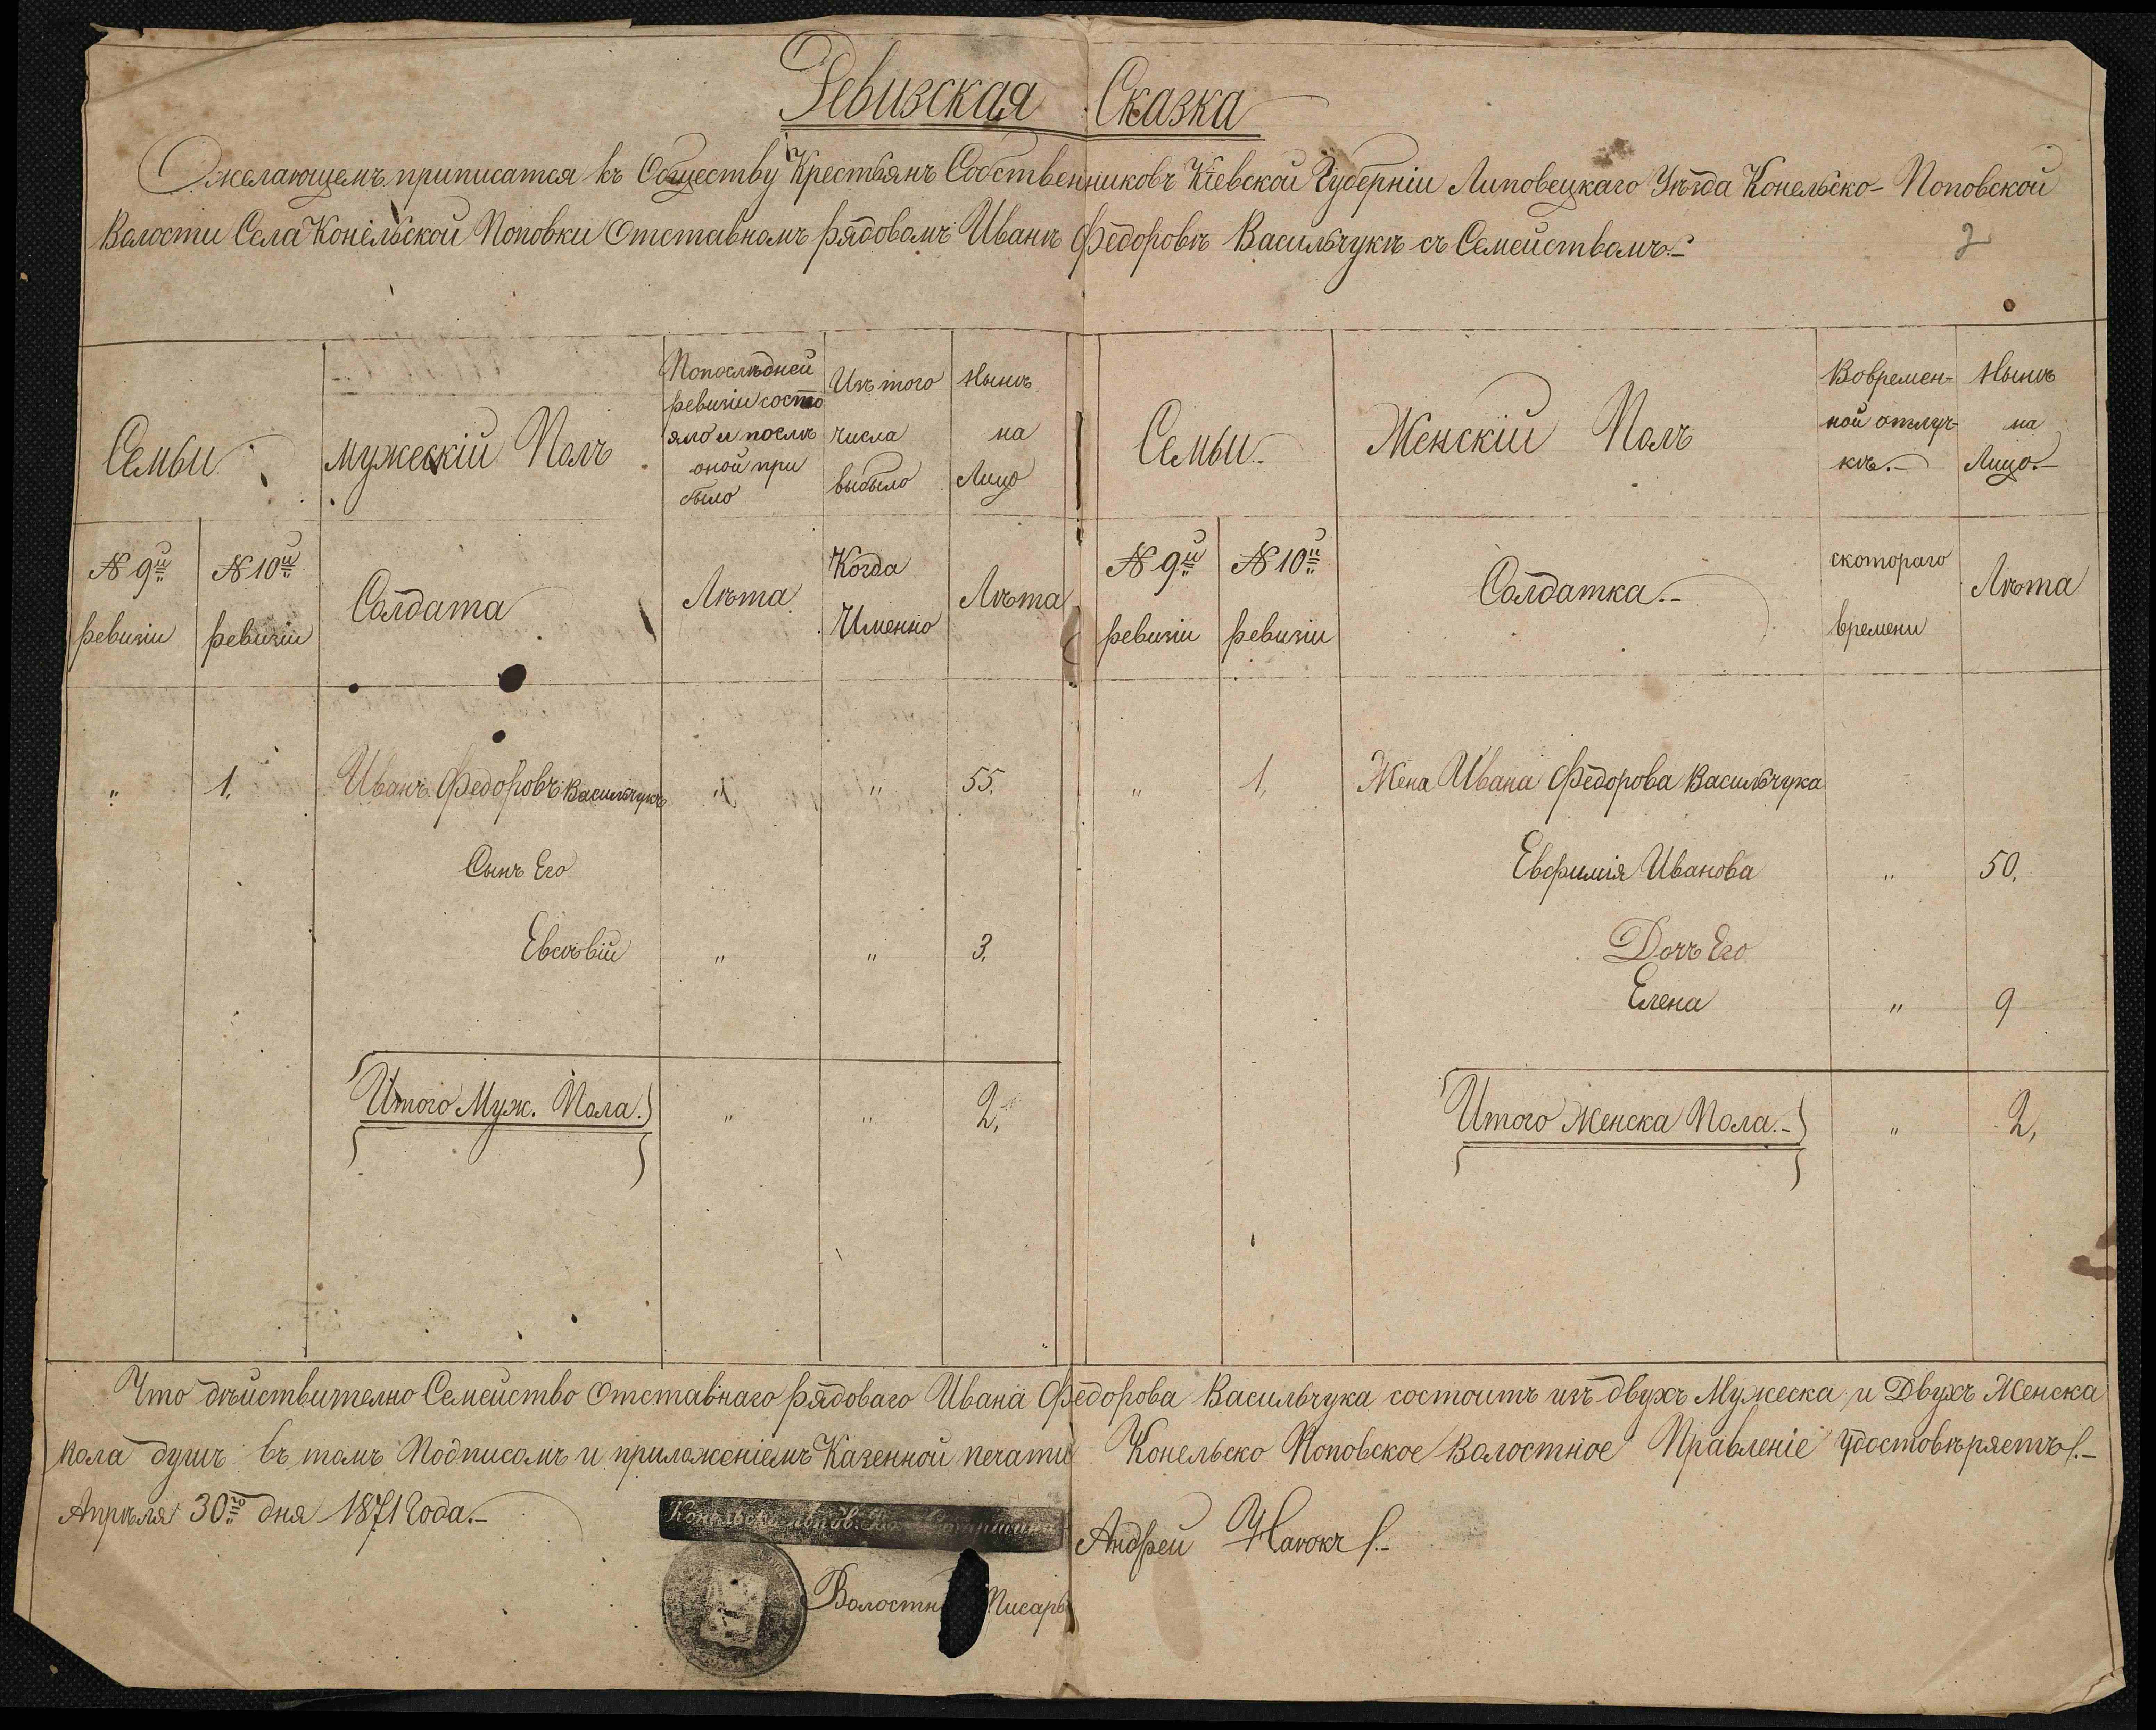 Ревизская Сказка
О желающемъ приписатся къ Обществу Крестьянъ Собственниковъ Кіевской Губерніи Липовецкаго Уѣзда Конельско-Поповской
Волости Села Конельской Поповки Отставномъ рядовомъ Иванѣ Федоровѣ Васильчукѣ съ Семействомъ.-
2
Семьи
мужескій Полъ
По послѣдней
ревизіи состо
яло и послѣ
оной при
было
Изъ того
числа
выбыло
Нынѣ
на
Лицо
Семьи.-
Женскій Полъ
Во времен-
ной отлуч-
кѣ.-
Нынѣ
на
Лицо.-
№ 9й
ревизіи
№ 10й
ревизіи
Солдата
Лѣта.
Когда
Именно
Лѣта
№ 9й
ревизіи
№ 10й
ревизіи
Солдатка.-
с котораго
времени
Лѣта
" 1. Иванъ Федоровъ Васильчукъ " " 55. " 1, Жена Ивана Федорова Васильчука
Сынъ Его
Евфимія Иванова " 50.
Евсѣвій " " 3.
Дочь Его
Елена " 9
Итого Муж. Пола. " " 2,
Итого Женска Пола.- " 2,
Что дѣйствително Семейство Отставнаго рядоваго Ивана Федорова Васильчука состоитъ изъ двухъ Мужеска и Двухъ Женска
пола душъ въ томъ Подписомъ и приложеніемъ Казенной печати Конельско Поповское Волостное Правленіе удостовѣряетъ.-
Апрѣля 30го дня 1871 Года.-
Андрей
Волостн Писарь